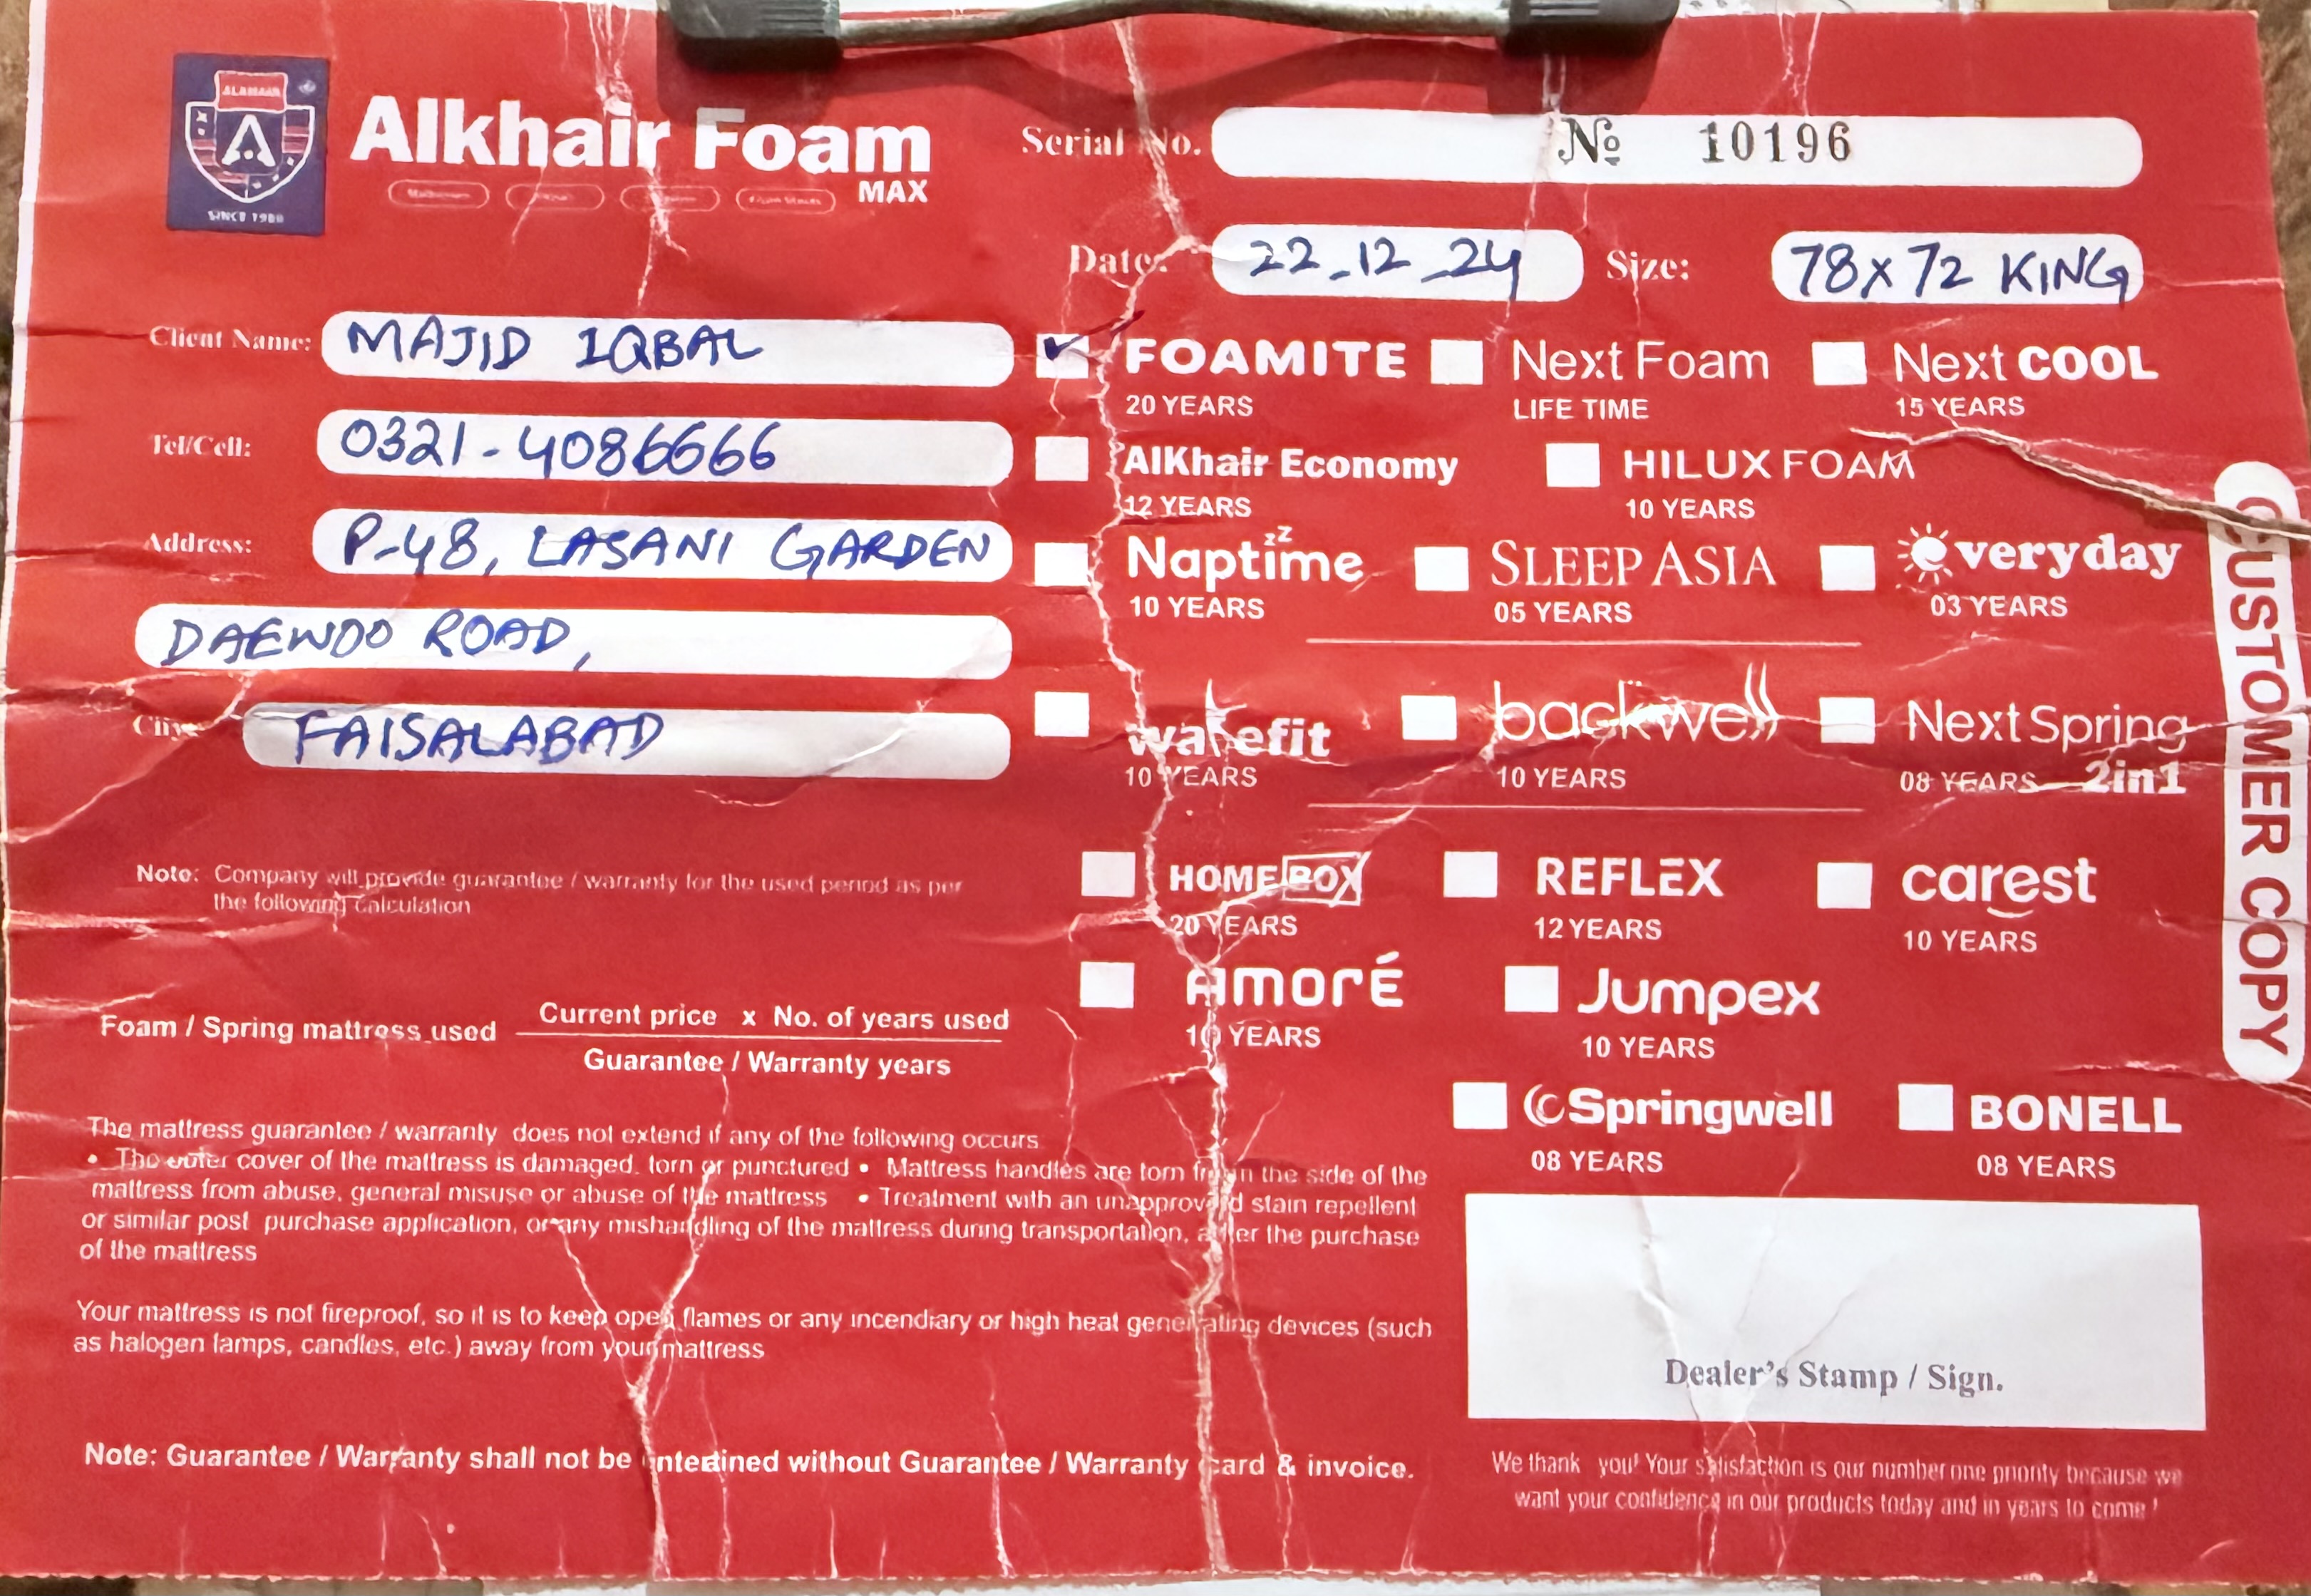 ALKHAIR
SINCE 1980
Alkhair Foam
MAX
Serial No. № 10196
Date: 22_12_24 Size: 78x72 KING
Client Name: MAJID IQBAL
Tel/Cell: 0321-4086666
Address: P-48, LASANI GARDEN
DAEWOO ROAD,
City: FAISALABAD
FOAMITE Next Foam Next COOL
20 YEARS LIFE TIME 15 YEARS
AlKhair Economy HILUX FOAM
12 YEARS 10 YEARS
Naptime zz SLEEP ASIA everyday
10 YEARS 05 YEARS 03 YEARS
wakefit backwell Next Spring
10 YEARS 10 YEARS 08 YEARS 2in1
HOMEBOX REFLEX carest
20 YEARS 12 YEARS 10 YEARS
AMORÉ Jumpex
10 YEARS 10 YEARS
Springwell BONELL
08 YEARS 08 YEARS
CUSTOMER COPY
Note: Company will provide guarantee / warranty for the used period as per
the following calculation
Foam / Spring mattress used Current price x No. of years used
Guarantee / Warranty years
The mattress guarantee / warranty does not extend if any of the following occurs
• The outer cover of the mattress is damaged. torn or punctured • Mattress handles are torn from the side of the
mattress from abuse, general misuse or abuse of the mattress • Treatment with an unapproved stain repellent
or similar post purchase application, or any mishandling of the mattress during transportation, after the purchase
of the mattress
Your mattress is not fireproof, so it is to keep open flames or any incendiary or high heat generating devices (such
as halogen lamps, candles, etc.) away from your mattress
Dealer's Stamp / Sign.
Note: Guarantee / Warranty shall not be entertined without Guarantee / Warranty card & invoice.
We thank you! Your satisfaction is our number one priority because we
want your confidence in our products today and in years to come !